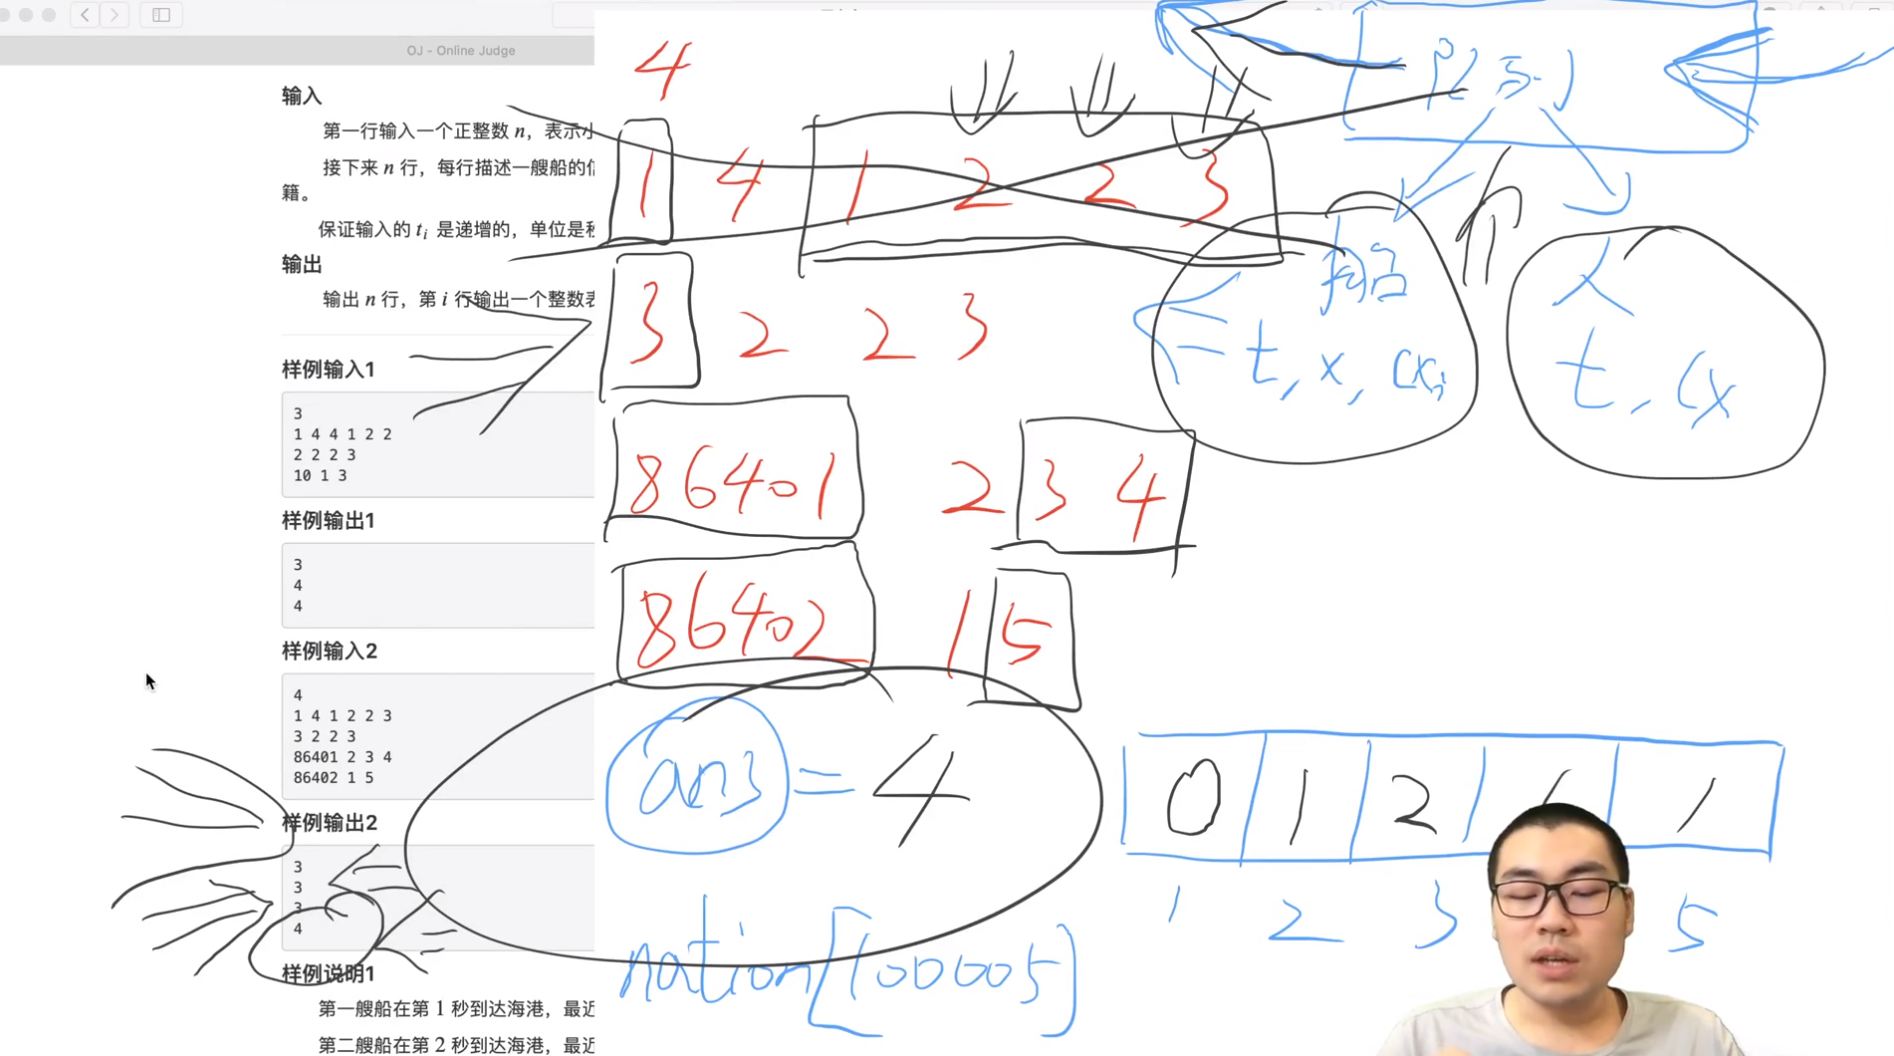 OJ - Online Judge
输入
第一行输入一个正整数 n，表示小
接下来 n 行，每行描述一艘船的信
籍。
保证输入的 tᵢ 是递增的，单位是秒
输出
输出 n 行，第 i 行输出一个整数表
样例输入1
3
1 4 4 1 2 2
2 2 2 3
10 1 3
样例输出1
3
4
4
样例输入2
4
1 4 1 2 2 3
3 2 2 3
86401 2 3 4
86402 1 5
样例输出2
3
3
3
4
样例说明1
第一艘船在第 1 秒到达海港，最近
第二艘船在第 2 秒到达海港，最近
4
1 4 1 2 2 3
3 2 2 3
86401 2 3 4
86402 1 5
ans = 4
nation[100005]
船
t, x, cx,
人
t, cx
0 1 2 1 1
1 2 3 5